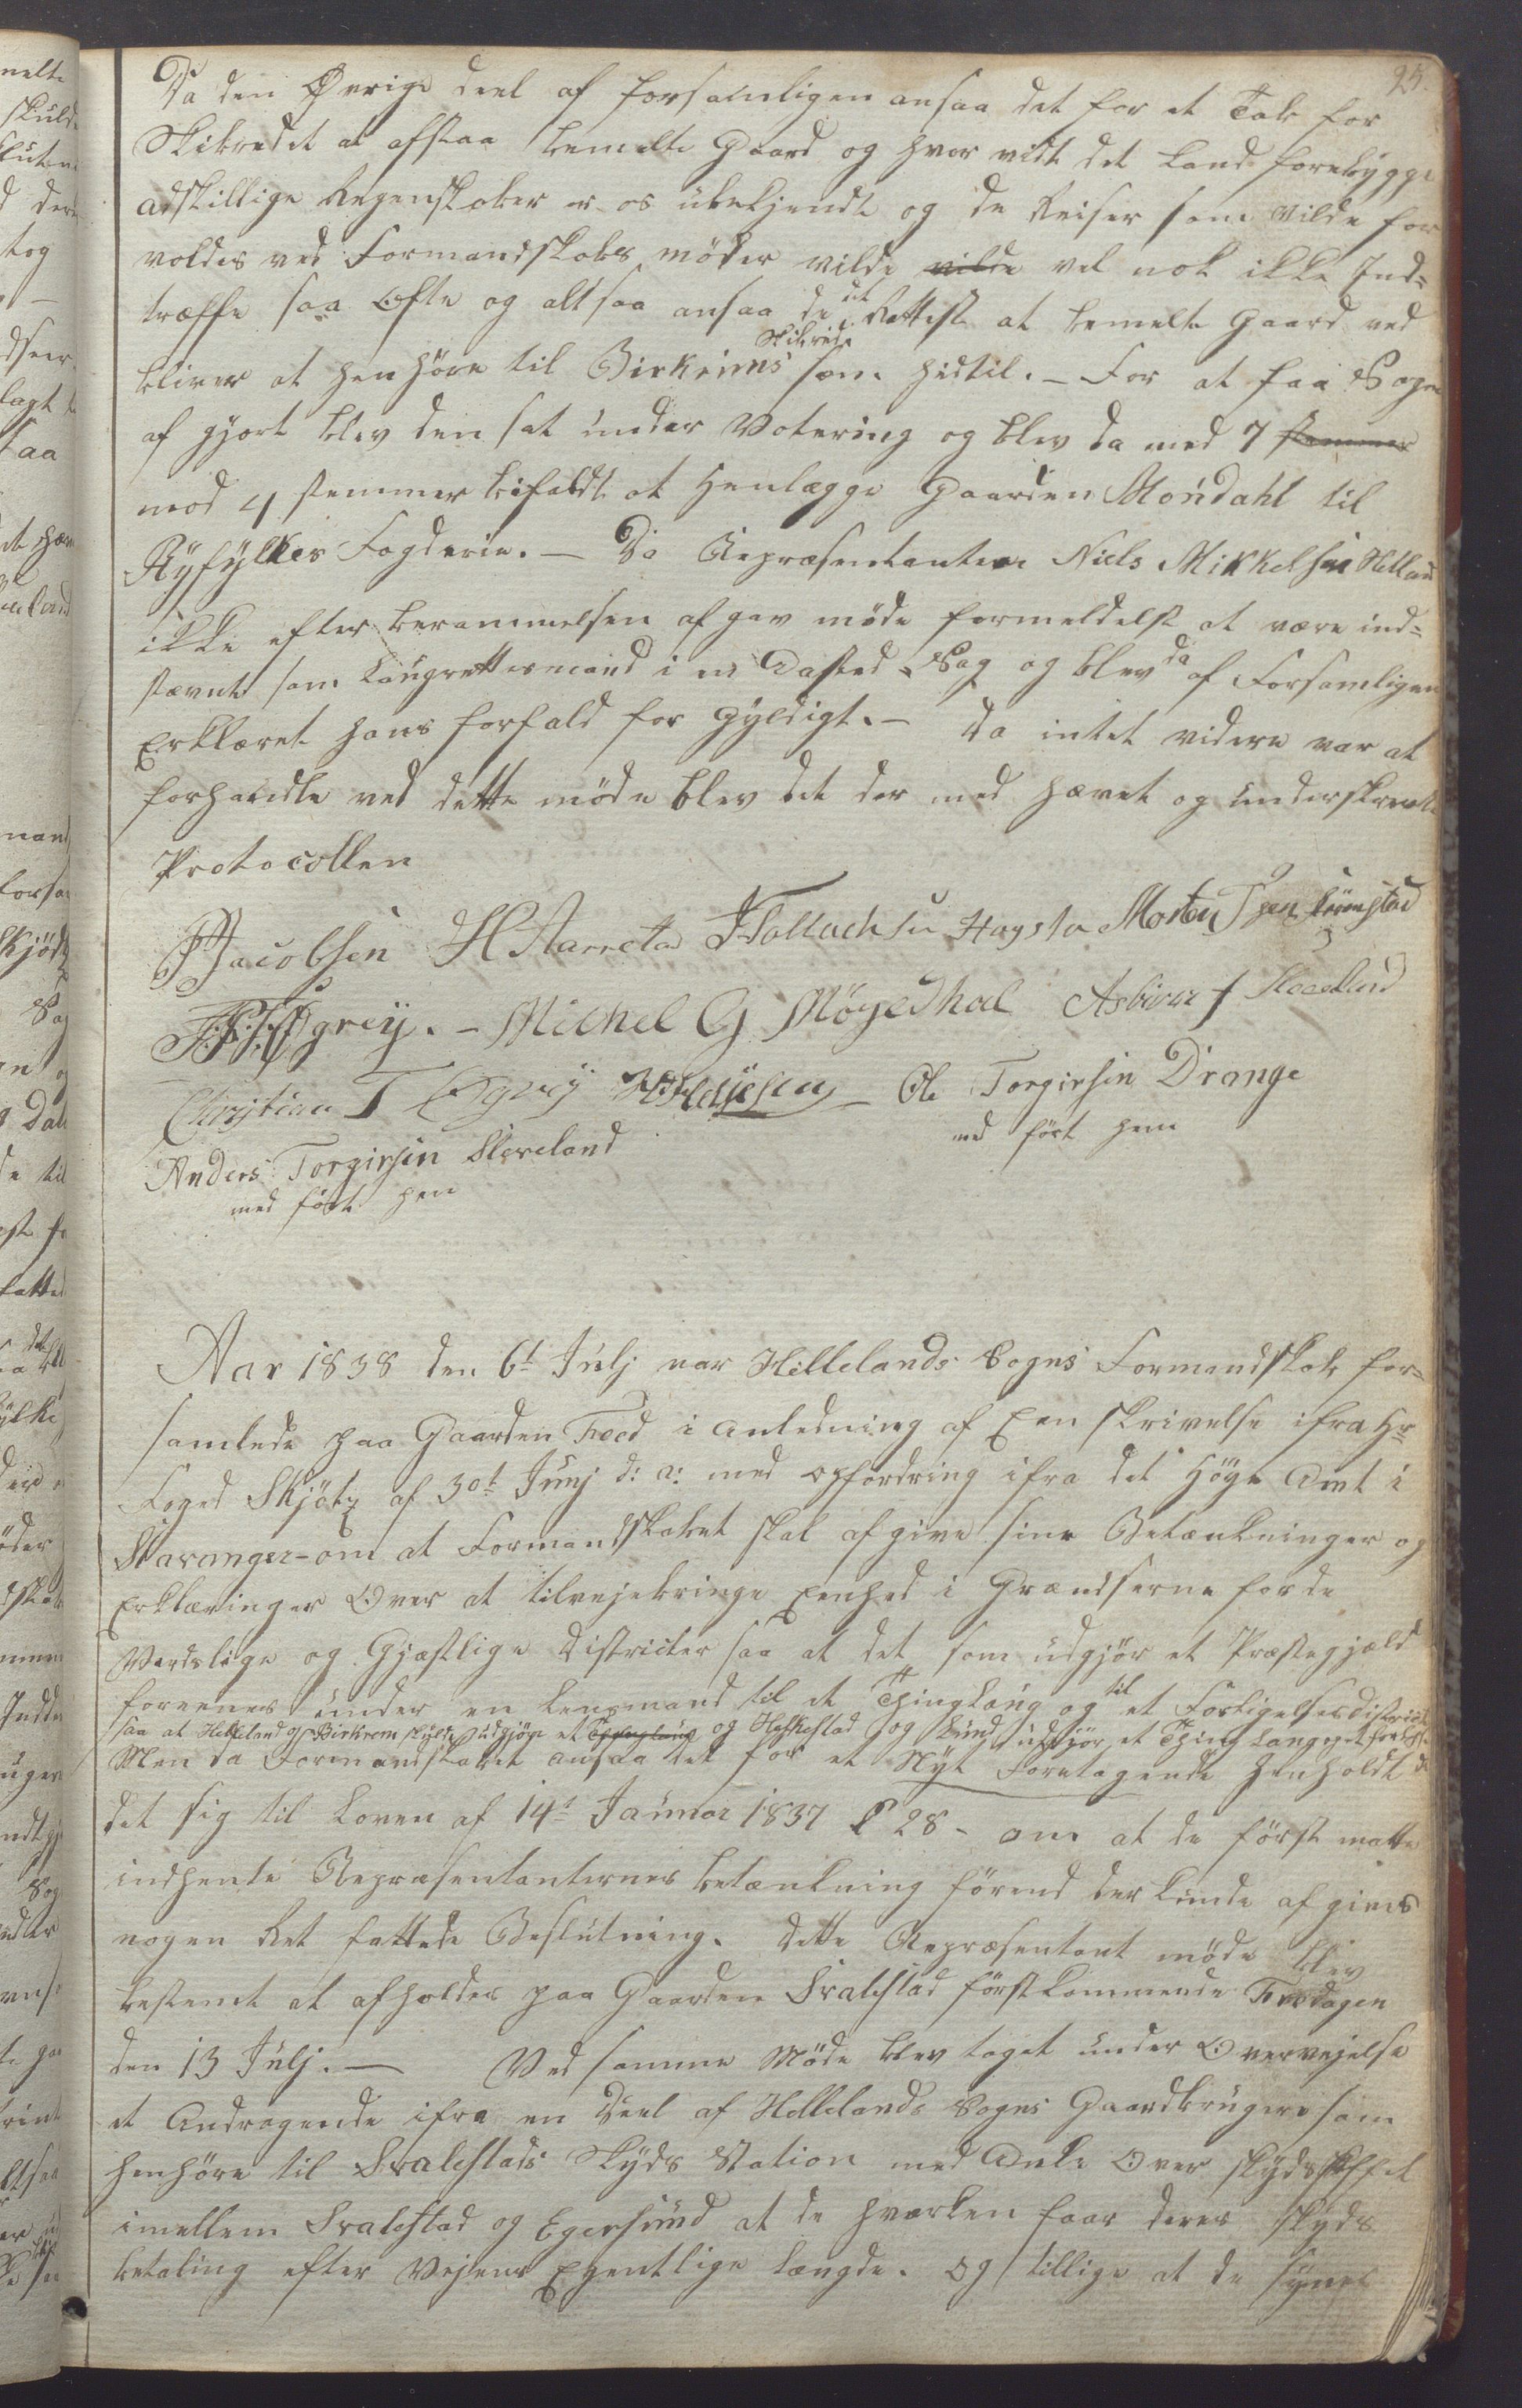 25.
Da den Øvrige deel af forsamligen ansaa det for et Tab for
Skibredet at afstaa bemelte Gaard og hvor vidt det kand forebygge
adskillige Regenskaber er os ubekjendt og de Reiser som vilde for
voldes ved Formandskabs møder vilde vilde vel nok ikke Ind-
træffe saa Ofte og altsaa ansaa de det Rettest at bemelte Gaard ved
bliver at henhøre til Birkrims Skibrede som hidtil. – For at faa Sagen
af gjort blev den sat under Votering og blev da med 7 stemmer
mod 4 stemmer bifaldt at Henlægge Gaarden Møndahl til
Ryfylkes Fogderie. – Da Repræsentanten Niels Mikkelsen Helland
ikke efter berammelsen af gav møde formeldelst at være ind-
stævnt som Laugrettesmand i en Aasted Sag og blev da af Forsamligen
Erklæret hans forfald for Gyldigt. – da intet videre var at
forhandle ved dette møde blev det der med hævet og underskrevet
Protocollen
P Jacobsen H Aarrestad Tollachsen Hagsta Morten
grey. – Michel G Møgedhal Asbiørn f Sleveland
Christian T Egrey Ole Torgirsen Drange
med ført hen
Anders Torgirsen Sleveland
med ført hen
Aar 1838 den 6t Julj var Hellelands Sogns Formandskab for-
samlede paa Gaarden Foed i Anledning af Een skrivelse ifra Hr
Foged Skjøtz af 30t Junj d: a: med opfordring ifra det Høye Amt i
Stavanger – om at Formandskabet skal afgive sine Betænkninger og
Erklæringer Over at tilvejebringe Eenhed i Grændserne for de
Verdslige og Gjæstlige Districter saa at det som udgjør et Præstegjæld
foreenes under en Lensmand til et Thinglaug og til et Forligelsesdistrict
saa at Helleland og Birkrem skulde udgjøre et Thinglaug og Heskestad og Lund udgjør et Thinglaug
Men da Formandskabet ansaa det for et Nyt Foretagende henholdt
det sig til Loven af 14t Januar 1837 § 28 – om at de først matte
indhente Repræsentanternes betænkning førend der kunde af gives
nogen Ret fattede Beslutning. dette Repræsentant møde blev
bestemt at afholdes paa Gaarden Svalestad førstkommende Fredagen
den 13 Julj. – Ved samme Møde blev taget under Overvejelse
et Andragende ifra en Deel af Hellelands Sogns Gaardbrugere som
henhøre til Svalestads Skyds Station med Anke Over skydsskiftet
imellem Svalestad og Egersund at de hverken faar deres skyds
betaling efter Vejens Egentlige Længde. og tillige at de synes